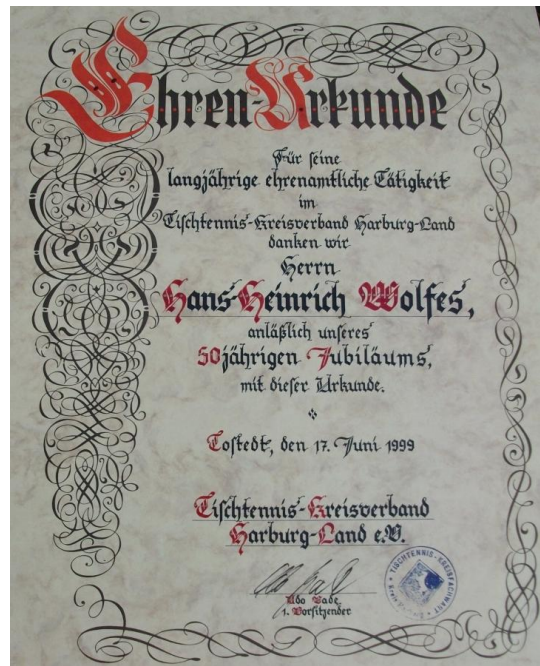 Ehren-Urkunde
Für seine
langjährige ehrenamtliche Tätigkeit
im
Tischtennis-Kreisverband Harburg-Land
danken wir
Herrn
Hans-Heinrich Wolfes,
anläßlich unseres
50jährigen Jubiläums,
mit dieser Urkunde.
Tostedt, den 17. Juni 1999
Tischtennis-Kreisverband
Harburg-Land e.V.
Udo Bade
1. Vorsitzender
TISCHTENNIS-KREISFACHWART